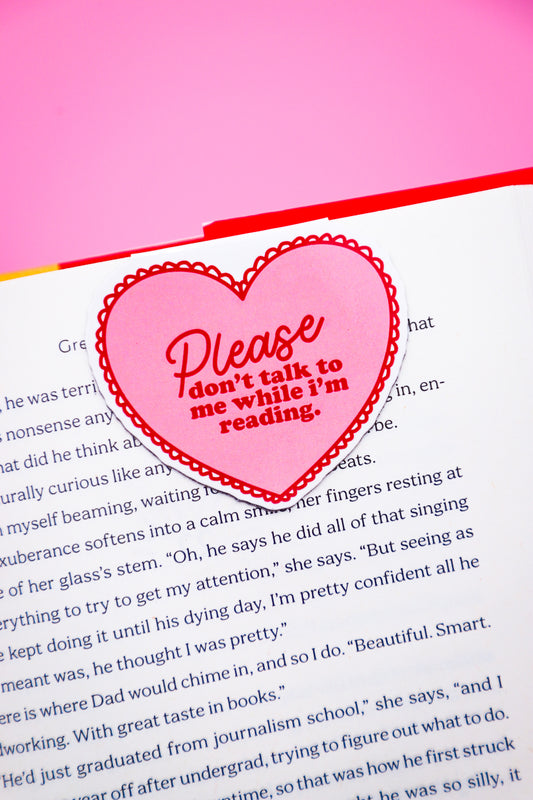 Gre hat
Please
don't talk to
me while i'm
reading.
, he was terri in, en-
s nonsense any be.
hat did he think ab eats.
urally curious like any her fingers resting at
n myself beaming, waiting fo
xuberance softens into a calm smile, he did all of that singing
e of her glass's stem. “Oh, he says he did all of that singing
erything to try to get my attention,” she says. “But seeing as
e kept doing it until his dying day, I'm pretty confident all he
meant was, he thought I was pretty.”
ere is where Dad would chime in, and so I do. “Beautiful. Smart.
dworking. With great taste in books.”
“He'd just graduated from journalism school,” she says, “and I
year off after undergrad, trying to figure out what to do.
ntime, so that was how he first struck
ht he was so silly, it